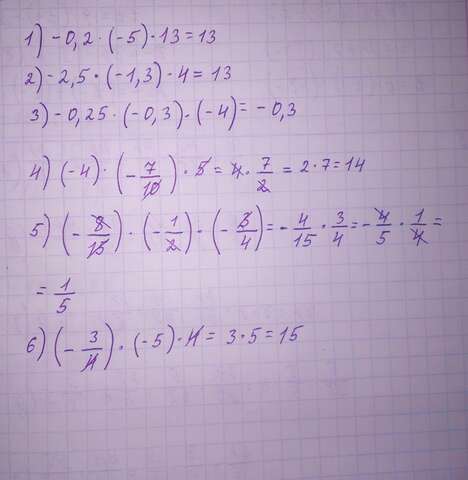 1) -0,2 · (-5) · 13 = 13
2) -2,5 · (-1,3) · 4 = 13
3) -0,25 · (-0,3) · (-4) = -0,3
4) (-4) · (-7/10) · 5 = 4 · 7/2 = 2 · 7 = 14
5) (-8/15) · (-1/2) · (-3/4) = -4/15 · 3/4 = -4/5 · 1/4 =
= 1/5
6) (-3/11) · (-5) · 11 = 3 · 5 = 15